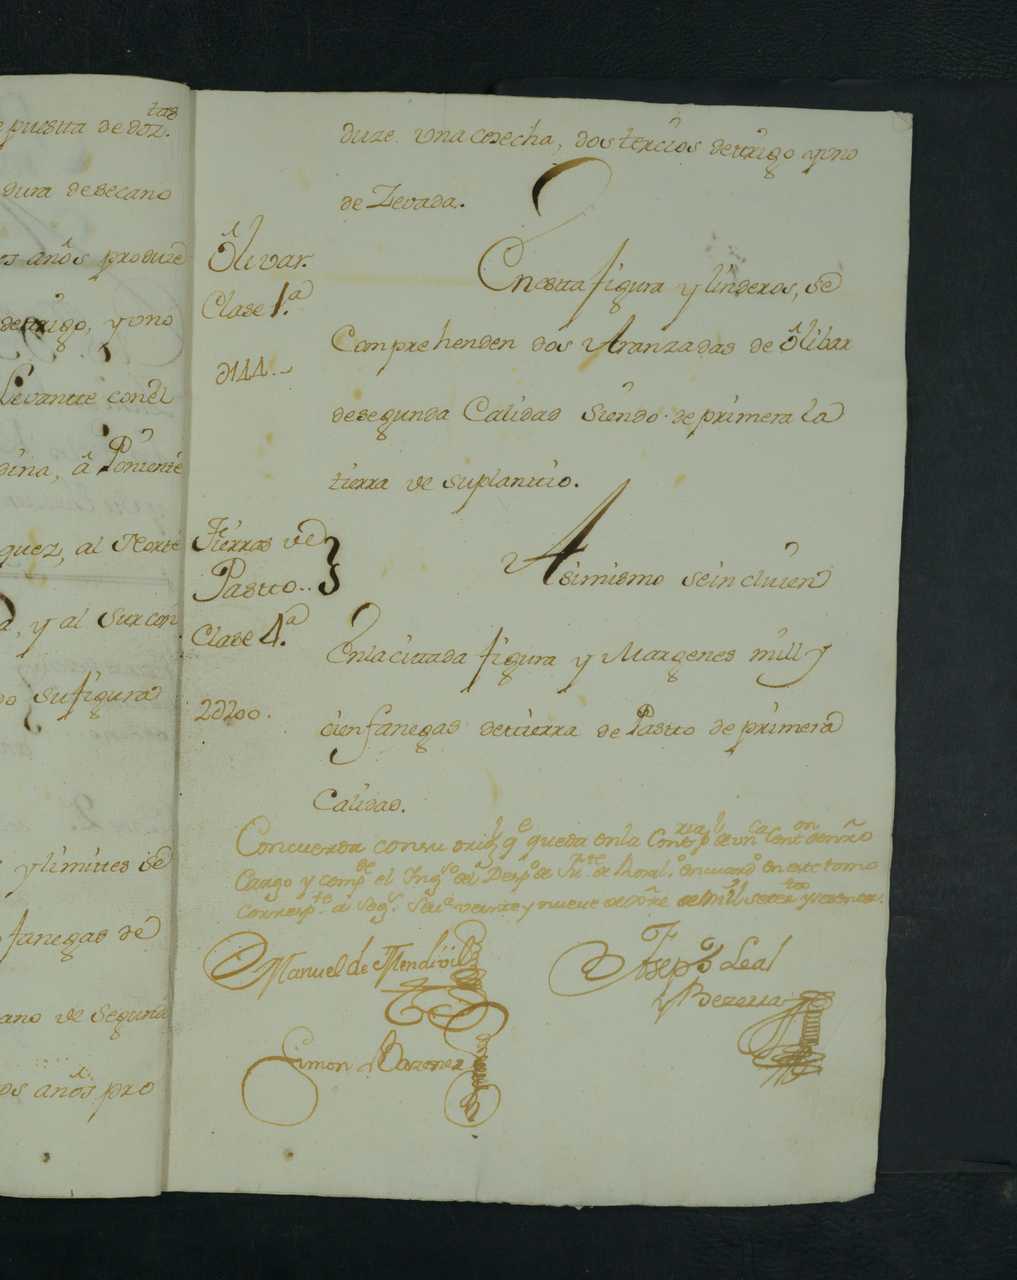 tas
puesta de doz.
dura de secano
os años produze
de trigo, y uno
Levante con el
dina, â Poniente
quez, al Norte
y al Sur con
do su figura
y limites se
fanegas de
ano de segunda
os años pro
duze una cosecha, dos tercios de trigo y uno
de Zevada.
Ôlivar.
Clase 1.ª
d144..
En esta figura y linderos, se
Comprehenden dos Aranzadas de Ôlibar
de segunda Calidad siendo de primera la
tierra de su plantio.
Tierras de
Pasto..
Clase 4.ª
2d200.
Asimismo se incluien
En la citada figura y Margenes mill y
cien fanegas de tierra de Pasto de primera
Calidad.
Concuerda con su orig.l q.e queda en la Cont.ria pral de un.ca Cont.on de nro
Cargo y comp.de el Ing.so del Desp.do de Sn. de en este tomo
Corresp.te a Seg.r Sev.a veinte y nueve de de mil setez.tos y
Manuel de Mendivil
Joseph Leal
Bezerra
Simon Barones